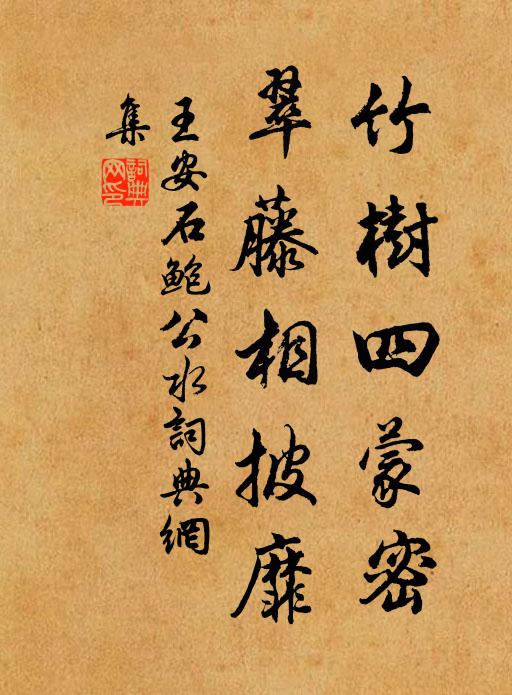 竹樹四蒙密
翠藤相披靡
王安石鮑公水詞典網
集
詞典網印